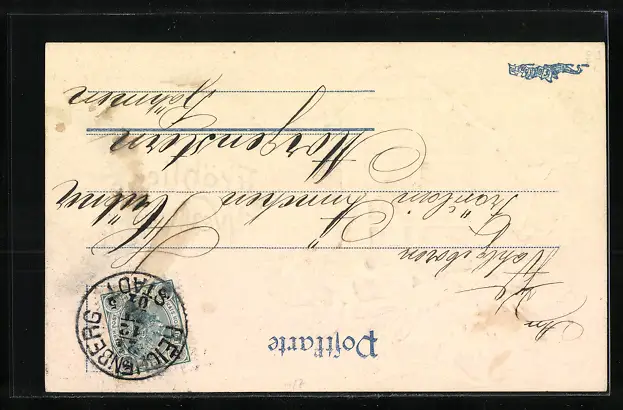 Postkarte
An
Wohlgeboren
Fräulein Ännchen Hübner
Morgenstern
Böhmen
REICHENBERG
STADT